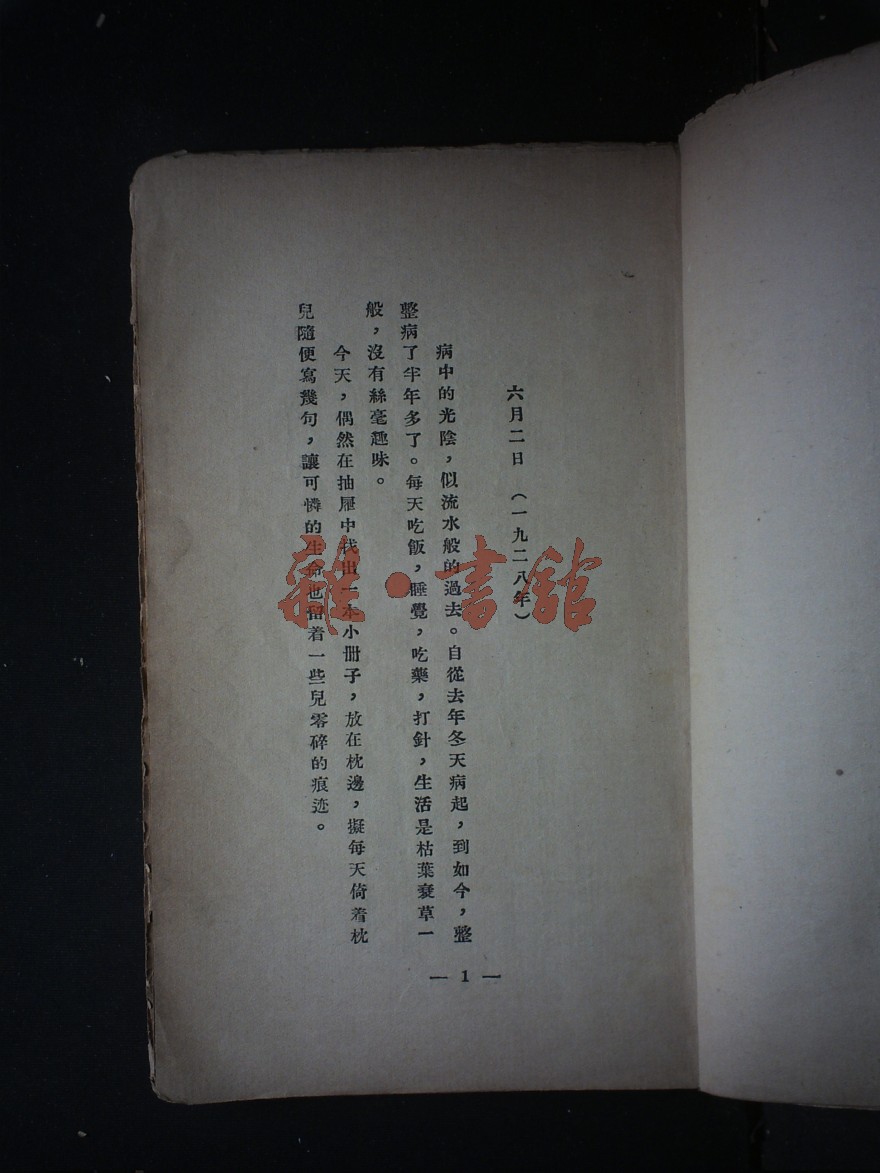 六月二日　（一九二八年）
病中的光陰，似流水般的過去。自從去年冬天病起，到如今，整
整病了半年多了。每天吃飯，睡覺，吃藥，打針，生活是枯葉衰草一
般，沒有絲毫趣味。
今天，偶然在抽屜中找出一本小冊子，放在枕邊，擬每天倚着枕
兒隨便寫幾句，讓可憐的生命也留着一些兒零碎的痕迹。
— 1 —
雜·書館